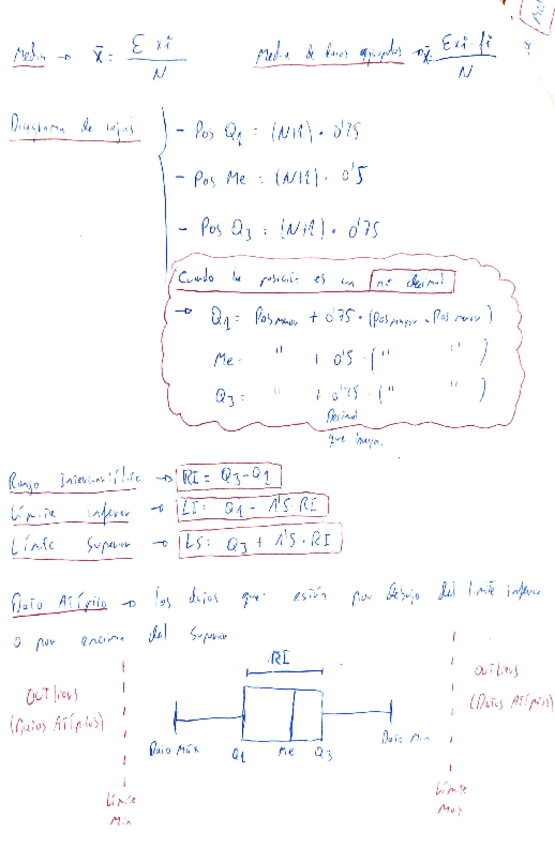 Media → x̄ = Σ xi / N    Media de Datos agrupados → x̄ = Σ xi · fi / N
Diagrama de cajas
- Pos Q1 = (N+1) · 0'75
- Pos Me = (N+1) · 0'5
- Pos Q3 = (N+1) · 0'75
Cuando la posición es un nº decimal
→ Q1 = Pos menor + 0'75 · (Pos mayor - Pos menor)
Me = " + 0'5 · (" " )
Q3 = " + 0'75 · (" " )
Decimal
que haya.
Rango Intercuartílico → RI = Q3 - Q1
Límite inferior → LI = Q1 - 1'5 · RI
Límite Superior → LS = Q3 + 1'5 · RI
Dato Atípico → los datos que están por debajo del límite inferior
o por encima del Superior
RI
outliers
(Datos Atípicos)
outliers
(Datos Atípicos)
Dato Máx Q1 Me Q3 Dato Min
Límite
Min
Límite
Max